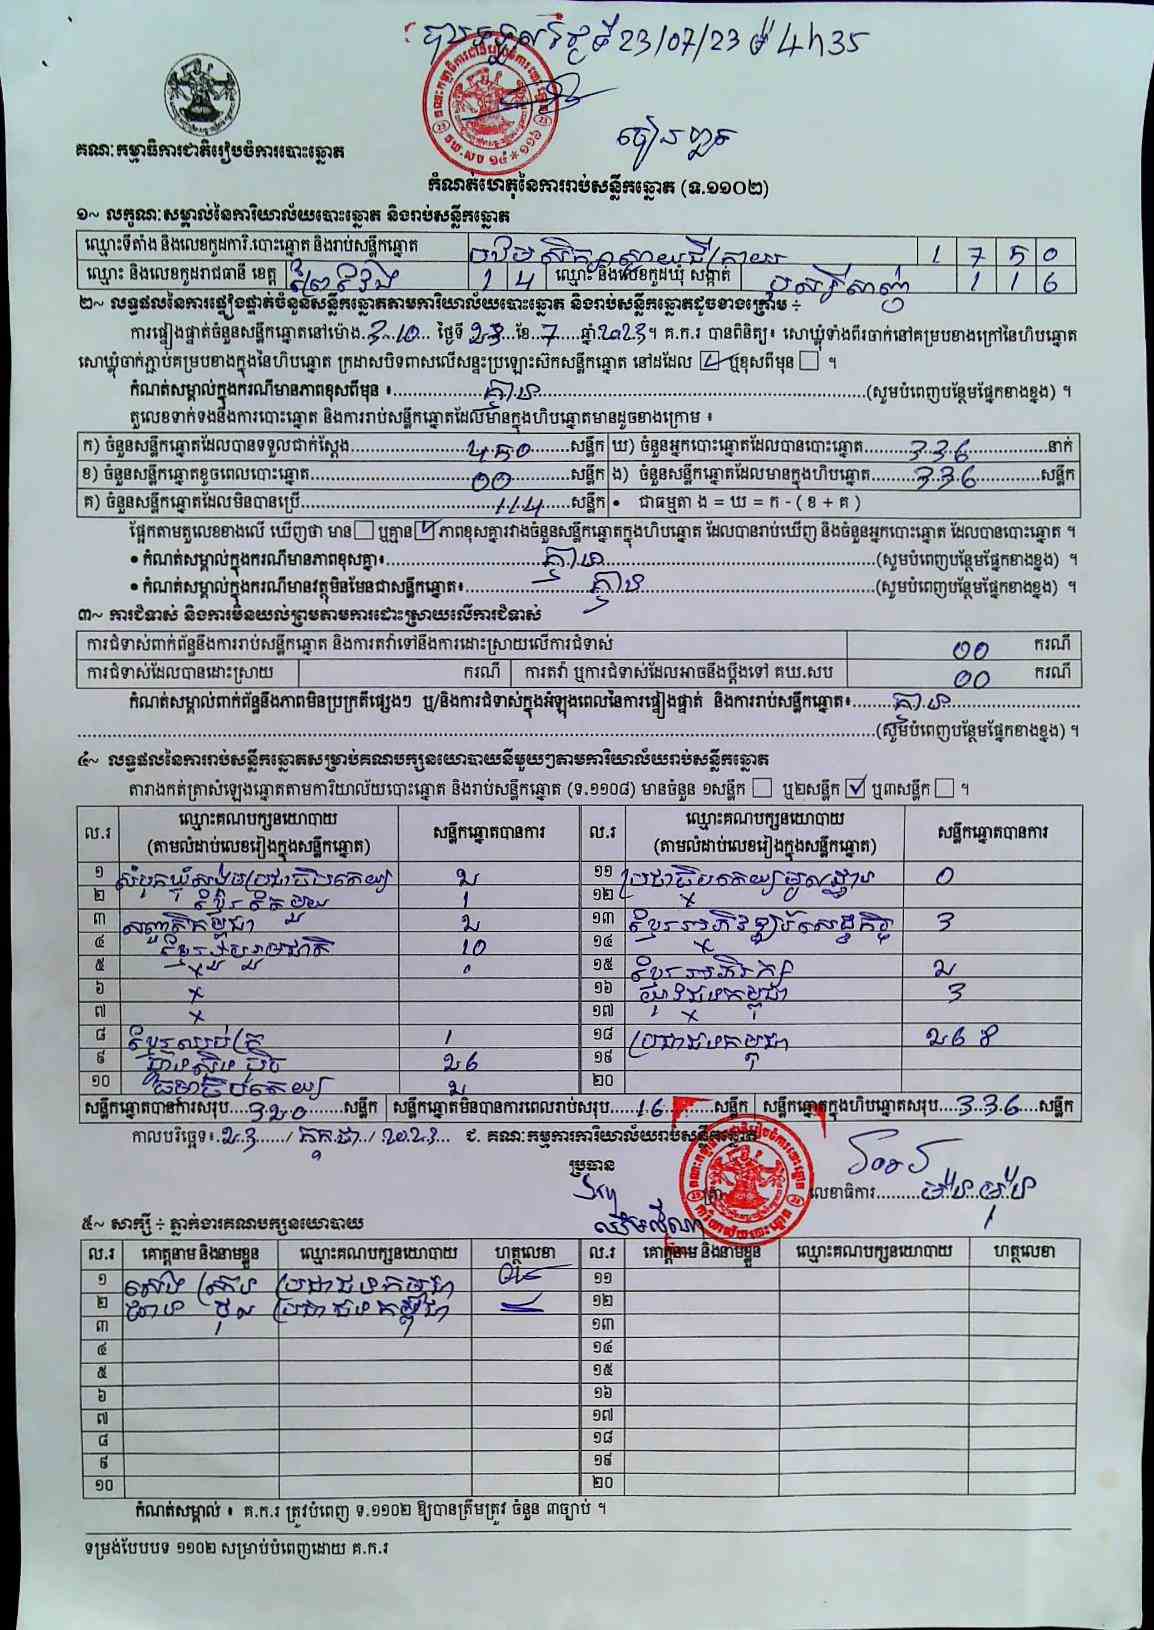 23/07/23 ម៉ 4h35
គណៈកម្មាធិការជាតិរៀបចំការបោះឆ្នោត
កំណត់ហេតុនៃការរាប់សន្លឹកឆ្នោត (ទ.១១០២)
១~ លក្ខណៈសម្គាល់នៃការិយាល័យបោះឆ្នោត និងរាប់សន្លឹកឆ្នោត
ឈ្មោះទីតាំង និងលេខកូដការិ.បោះឆ្នោត និងរាប់សន្លឹកឆ្នោត 1 7 5 0
ឈ្មោះ និងលេខកូដរាជធានី ខេត្ត ព្រៃវែង 1 4 ឈ្មោះ និងលេខកូដឃុំ សង្កាត់ 1 1 6
២~ លទ្ធផលនៃការផ្ទៀងផ្ទាត់ចំនួនសន្លឹកឆ្នោតតាមការិយាល័យបោះឆ្នោត និងរាប់សន្លឹកឆ្នោតដូចខាងក្រោម ÷
ការផ្ទៀងផ្ទាត់ចំនួនសន្លឹកឆ្នោតនៅម៉ោង 3.10 ថ្ងៃទី 23 ខែ 7 ឆ្នាំ 2023។ គ.ក.រ បានពិនិត្យ៖ សោឃ្លុំទាំងពីរចាក់នៅគម្របខាងក្រៅនៃហិបឆ្នោត
សោឃ្លុំចាក់ភ្ជាប់គម្របខាងក្នុងនៃហិបឆ្នោត ក្រដាសបិទពាសលើសន្ទះប្រឡោះស៊កសន្លឹកឆ្នោត នៅដដែល ☑ ឬខុសពីមុន ☐ ។
កំណត់សម្គាល់ក្នុងករណីមានភាពខុសពីមុន ៖ គ្មាន (សូមបំពេញបន្ថែមផ្នែកខាងខ្នង) ។
តួលេខទាក់ទងនឹងការបោះឆ្នោត និងការរាប់សន្លឹកឆ្នោតដែលមានក្នុងហិបឆ្នោតមានដូចខាងក្រោម ៖
ក) ចំនួនសន្លឹកឆ្នោតដែលបានទទួលជាក់ស្តែង 450 សន្លឹក ឃ) ចំនួនអ្នកបោះឆ្នោតដែលបានបោះឆ្នោត 336 នាក់
ខ) ចំនួនសន្លឹកឆ្នោតខូចពេលបោះឆ្នោត 00 សន្លឹក ង) ចំនួនសន្លឹកឆ្នោតដែលមានក្នុងហិបឆ្នោត 336 សន្លឹក
គ) ចំនួនសន្លឹកឆ្នោតដែលមិនបានប្រើ 114 សន្លឹក • ជាធម្មតា ង = ឃ = ក - ( ខ + គ )
ផ្អែកតាមតួលេខខាងលើ ឃើញថា មាន ☐ ឬគ្មាន ☑ ភាពខុសគ្នារវាងចំនួនសន្លឹកឆ្នោតក្នុងហិបឆ្នោត ដែលបានរាប់ឃើញ និងចំនួនអ្នកបោះឆ្នោត ដែលបានបោះឆ្នោត ។
• កំណត់សម្គាល់ក្នុងករណីមានភាពខុសគ្នា៖ គ្មាន (សូមបំពេញបន្ថែមផ្នែកខាងខ្នង) ។
• កំណត់សម្គាល់ក្នុងករណីមានវត្ថុមិនមែនជាសន្លឹកឆ្នោត៖ គ្មាន (សូមបំពេញបន្ថែមផ្នែកខាងខ្នង) ។
៣~ ការជំទាស់ និងការមិនយល់ព្រមតាមការដោះស្រាយលើការជំទាស់
ការជំទាស់ពាក់ព័ន្ធនឹងការរាប់សន្លឹកឆ្នោត និងការតវ៉ាទៅនឹងការដោះស្រាយលើការជំទាស់ 00 ករណី
ការជំទាស់ដែលបានដោះស្រាយ ករណី ការតវ៉ា ឬការជំទាស់ដែលអាចនឹងប្តឹងទៅ គឃ.សប 00 ករណី
កំណត់សម្គាល់ពាក់ព័ន្ធនឹងភាពមិនប្រក្រតីផ្សេងៗ ឬ/និងការជំទាស់ក្នុងអំឡុងពេលនៃការផ្ទៀងផ្ទាត់ និងការរាប់សន្លឹកឆ្នោត៖ គ្មាន
(សូមបំពេញបន្ថែមផ្នែកខាងខ្នង) ។
៤~ លទ្ធផលនៃការរាប់សន្លឹកឆ្នោតសម្រាប់គណបក្សនយោបាយនីមួយៗតាមការិយាល័យរាប់សន្លឹកឆ្នោត
តារាងកត់ត្រាសំឡេងឆ្នោតតាមការិយាល័យបោះឆ្នោត និងរាប់សន្លឹកឆ្នោត (ទ.១១០៨) មានចំនួន ១សន្លឹក ☐ ឬ២សន្លឹក ☑ ឬ៣សន្លឹក ☐ ។
ល.រ ឈ្មោះគណបក្សនយោបាយ (តាមលំដាប់លេខរៀងក្នុងសន្លឹកឆ្នោត) សន្លឹកឆ្នោតបានការ ល.រ ឈ្មោះគណបក្សនយោបាយ (តាមលំដាប់លេខរៀងក្នុងសន្លឹកឆ្នោត) សន្លឹកឆ្នោតបានការ
១ សំបុកឃ្មុំសង្គមប្រជាធិបតេយ្យ 2 ១១ ប្រជាធិបតេយ្យមូលដ្ឋាន 0
២ ខ្មែរតែមួយ 1 ១២ x
៣ សញ្ជាតិកម្ពុជា 2 ១៣ ខ្មែរអភិវឌ្ឍន៍សេដ្ឋកិច្ច 3
៤ ខ្មែររួបរួមជាតិ 10 ១៤ x
៥ x ១៥ ខ្មែរអភិរក្ស 2
៦ x ១៦ យុវជនកម្ពុជា 3
៧ x ១៧ x
៨ ខ្មែរឈប់ក្រ 1 ១៨ ប្រជាជនកម្ពុជា 268
៩ ហ្វ៊ុនស៊ិនប៉ិច 26 ១៩
១០ ធម្មាធិបតេយ្យ 2 ២០
សន្លឹកឆ្នោតបានការសរុប 320 សន្លឹក សន្លឹកឆ្នោតមិនបានការពេលរាប់សរុប 16 សន្លឹក សន្លឹកឆ្នោតក្នុងហិបឆ្នោតសរុប 336 សន្លឹក
កាលបរិច្ឆេទ៖ 23 / កក្កដា / 2023 ជ. គណៈកម្មការការិយាល័យរាប់សន្លឹកឆ្នោត
ប្រធាន
ត្រា លេខាធិការ
៥~ សាក្សី ÷ ភ្នាក់ងារគណបក្សនយោបាយ
ល.រ គោត្តនាម និងនាមខ្លួន ឈ្មោះគណបក្សនយោបាយ ហត្ថលេខា ល.រ គោត្តនាម និងនាមខ្លួន ឈ្មោះគណបក្សនយោបាយ ហត្ថលេខា
១ ប្រជាជនកម្ពុជា ១១
២ ប្រជាជនកម្ពុជា ១២
៣ ១៣
៤ ១៤
៥ ១៥
៦ ១៦
៧ ១៧
៨ ១៨
៩ ១៩
១០ ២០
កំណត់សម្គាល់ ៖ គ.ក.រ ត្រូវបំពេញ ទ.១១០២ ឱ្យបានត្រឹមត្រូវ ចំនួន ៣ច្បាប់ ។
ទម្រង់បែបបទ ១១០២ សម្រាប់បំពេញដោយ គ.ក.រ